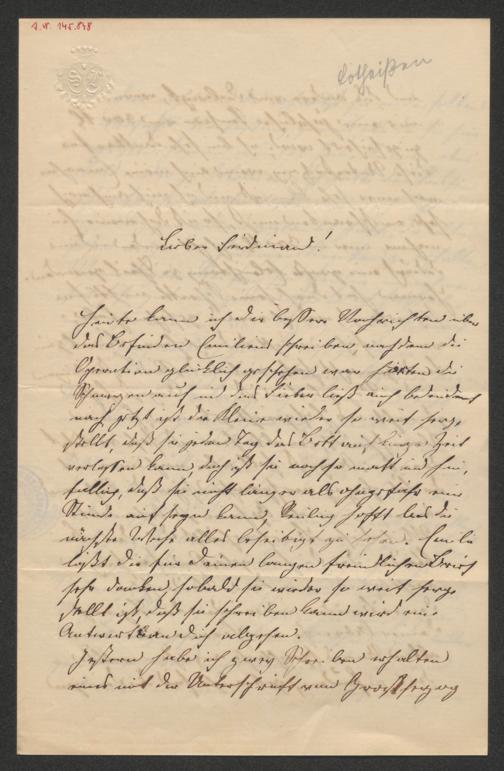 I.N. 145.838
Lotheißen
Lieber Ferdinand!
Heute kann ich dir bessere Nachrichten über
das Befinden Emiliens schreiben, nachdem die
Operation glücklich geschehen war hörten die
Schmerzen auch und das Fieber ließ auch bedeutend
nach jetzt ist die Kleine wieder so weit herge
stellt, daß sie jeden Tag das Bett auf kurze Zeit
verlassen kann, doch ist sie noch so matt und hin,
fällig, daß sie nicht länger als ohngefähr eine
Stunde auf seyn kann, hofft bis die
nächste Woche alles zu sehen. Emilie
läßt dir für deinen langen freundlichen Brief
sehr danken, sobald sie wieder so weit herge
stellt ist, daß sie schreiben kann wird eine
Antwort an dich abgehen.
Gestern habe ich zwey Schreiben erhalten
eines mit der Unterschrift vom Großherzog